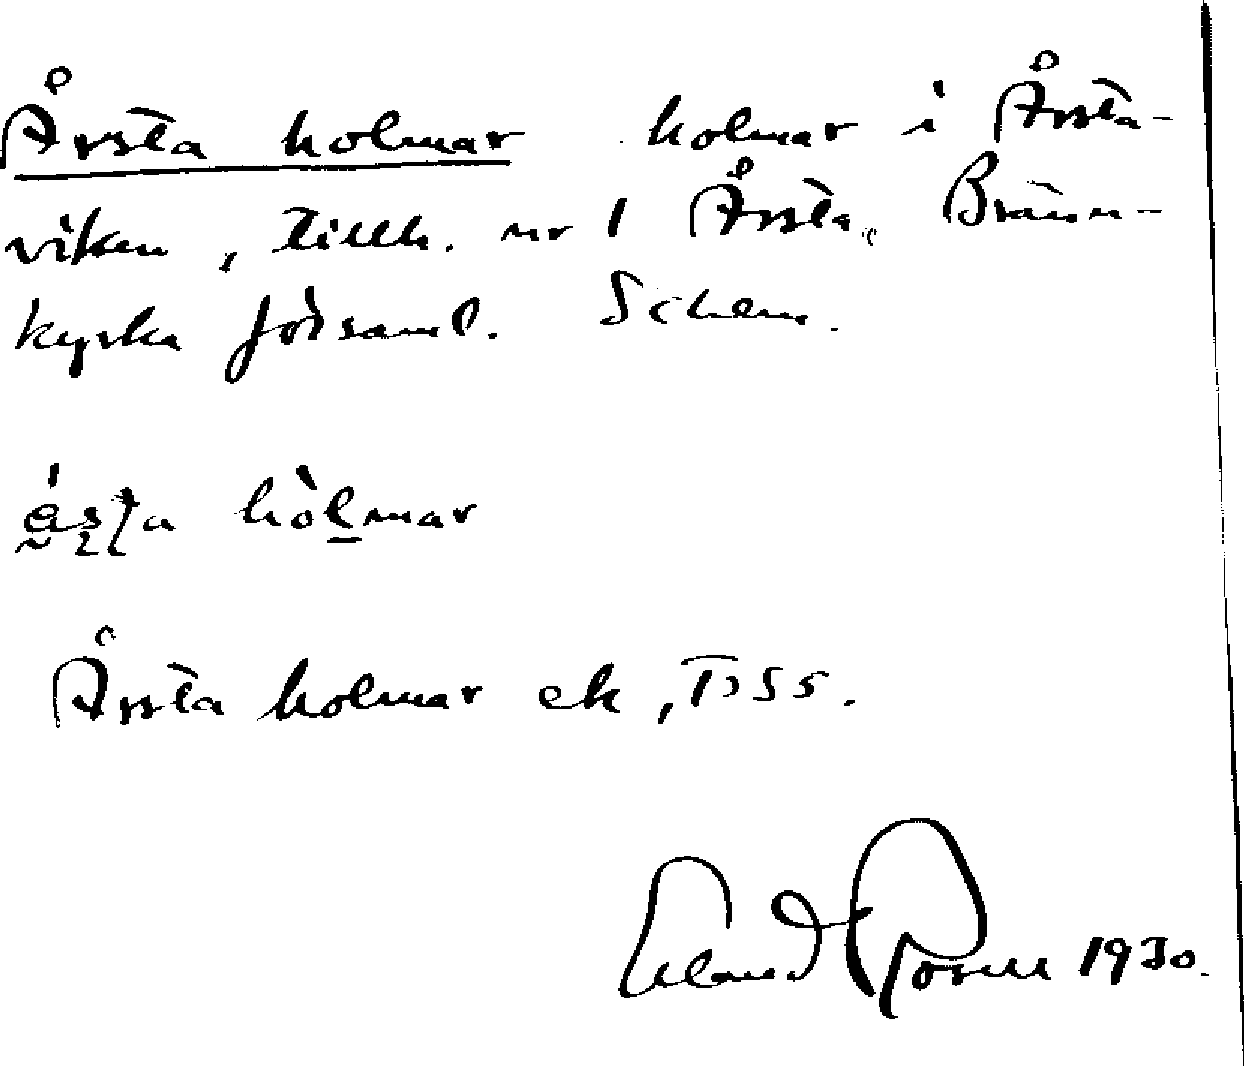 Årsta holmar holmar i Årsta-
viken, tillh. nr 1 Årsta, Bränn-
kyrka församl. Schem.
åsta hòlmar
Årsta holmar ek, T355.
Erland Rosell 1930.